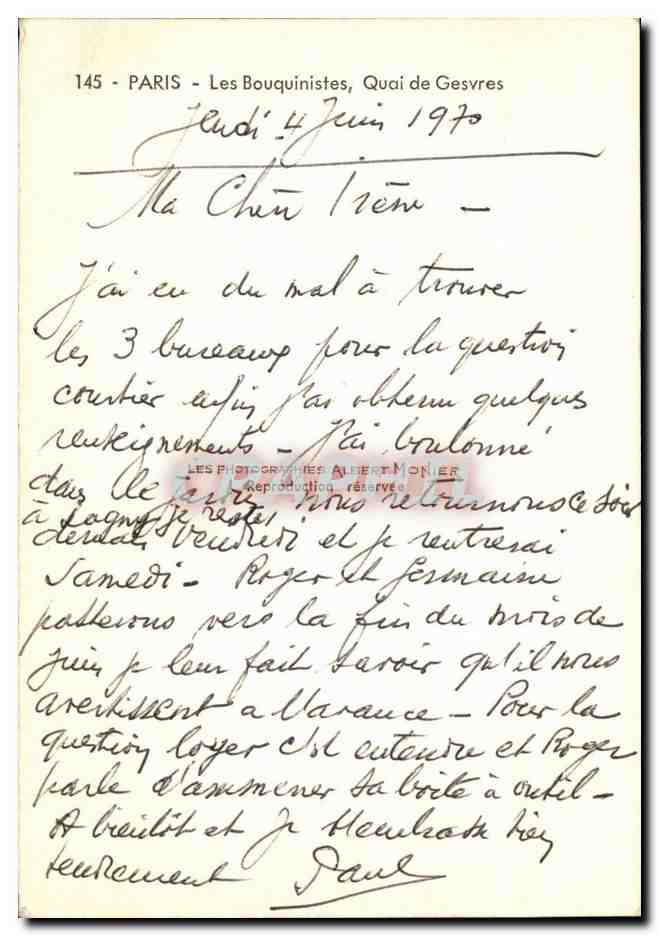 145 - PARIS - Les Bouquinistes, Quai de Gesvres
Jeudi 4 Juin 1970
Ma Chère Irène -
J'ai eu du mal à trouver
les 3 bureaux pour la question
courtier enfin j'ai obtenu quelques
renseignements - J'ai boulonné
LES PHOTOGRAPHIES ALBERT MONIER
Reproduction réservée
dans le jardin nous retournons ce soir
à Lagny je reste
demain Vendredi et je rentrerai
Samedi - Roger et Germaine
passerons vers la fin du mois de
Juin je leur fait savoir qu'il nous
avertissent a l'avance - Pour la
question loyer c'est entendu et Roger
parle d'ammener sa boite à outil -
A bientôt et je t'embrasse bien
tendrement Paul